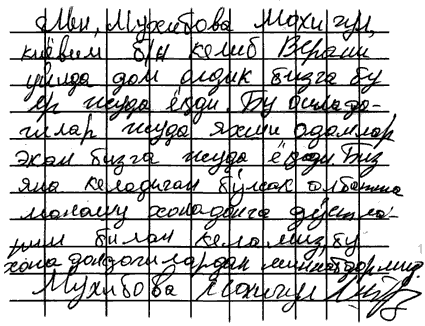 Мен, Мухибова Мохигул,
куёвим б/н келиб Вераши
уйида дам олдик бизга бу
ер жуда ёқди. Бу оилада-
гилар жуда яхши одамлар
экан бизга жуда ёқди Биз
яна келадиган бўлсак албатта
манашу хонадонга дўстла-
рим билан келамиз, бу
хонадондагилардан миннатдормиз.
Мухибова Мохигул